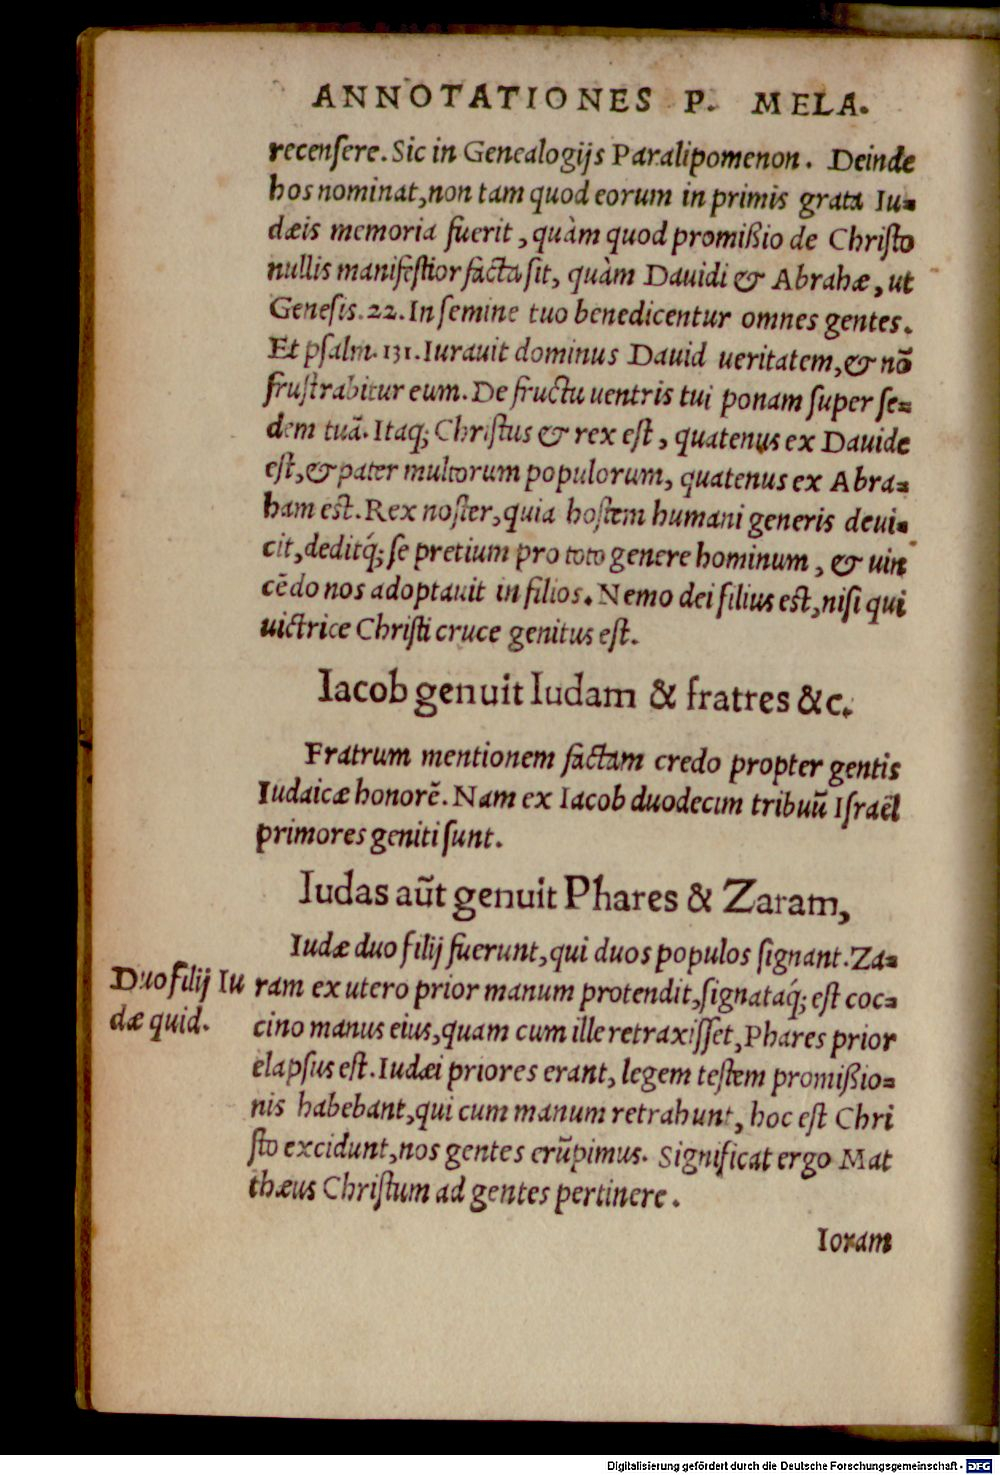 ANNOTATIONES P. MELA.
recenſere. Sic in Genealogijs Paralipomenon. Deinde
hos nominat, non tam quod eorum in primis grata Iu-
dæis memoria fuerit, quàm quod promißio de Chriſto
nullis manifeſtior facta ſit, quàm Dauidi & Abrahæ, ut
Geneſis. 22. In ſemine tuo benedicentur omnes gentes.
Et pſalm. 131. Iurauit dominus Dauid ueritatem, & nō
fruſtrabitur eum. De fructu uentris tui ponam ſuper ſe-
dem tuã. Itaq; Chriſtus & rex eſt, quatenus ex Dauide
eſt, & pater multorum populorum, quatenus ex Abra-
ham eſt. Rex noſter, quia hoſtem humani generis deui-
cit, deditq́; ſe pretium pro toto genere hominum, & uin
cẽdo nos adoptauit in filios. Nemo dei filius eſt, niſi qui
uictrice Chriſti cruce genitus eſt.
Iacob genuit Iudam & fratres &c.
Fratrum mentionem factam credo propter gentis
Iudaicæ honorẽ. Nam ex Iacob duodecim tribuũ Iſraël
primores geniti ſunt.
Iudas aũt genuit Phares & Zaram,
Iudæ duo filij fuerunt, qui duos populos ſignant. Za-
Duo filij Iu
dæ quid.
ram ex utero prior manum protendit, ſignataq́; eſt coc-
cino manus eius, quam cum ille retraxiſſet, Phares prior
elapſus eſt. Iudæi priores erant, legem teſtem promißio-
nis habebant, qui cum manum retrahunt, hoc eſt Chri
ſto excidunt, nos gentes erũpimus. Significat ergo Mat
thæus Chriſtum ad gentes pertinere.
Ioram
Digitalisierung gefördert durch die Deutsche Forschungsgemeinschaft - DFG